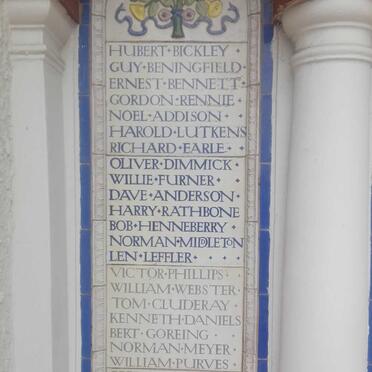 HUBERT · BICKLEY
GUY · BENINGFIELD
ERNEST · BENNETT
GORDON · RENNIE
NOEL · ADDISON ·
HAROLD · LUTKENS
RICHARD · EARLE ·
OLIVER · DIMMICK ·
WILLIE · FURNER ·
DAVE · ANDERSON ·
HARRY · RATHBONE
BOB · HENNEBERRY ·
NORMAN · MIDLETON
LEN · LEFFLER · · ·
VICTOR · PHILLIPS ·
WILLIAM · WEBSTER ·
TOM · CLUDERAY ·
KENNETH · DANIELS
BERT · GOREING ·
NORMAN · MEYER ·
WILLIAM · PURVES ·